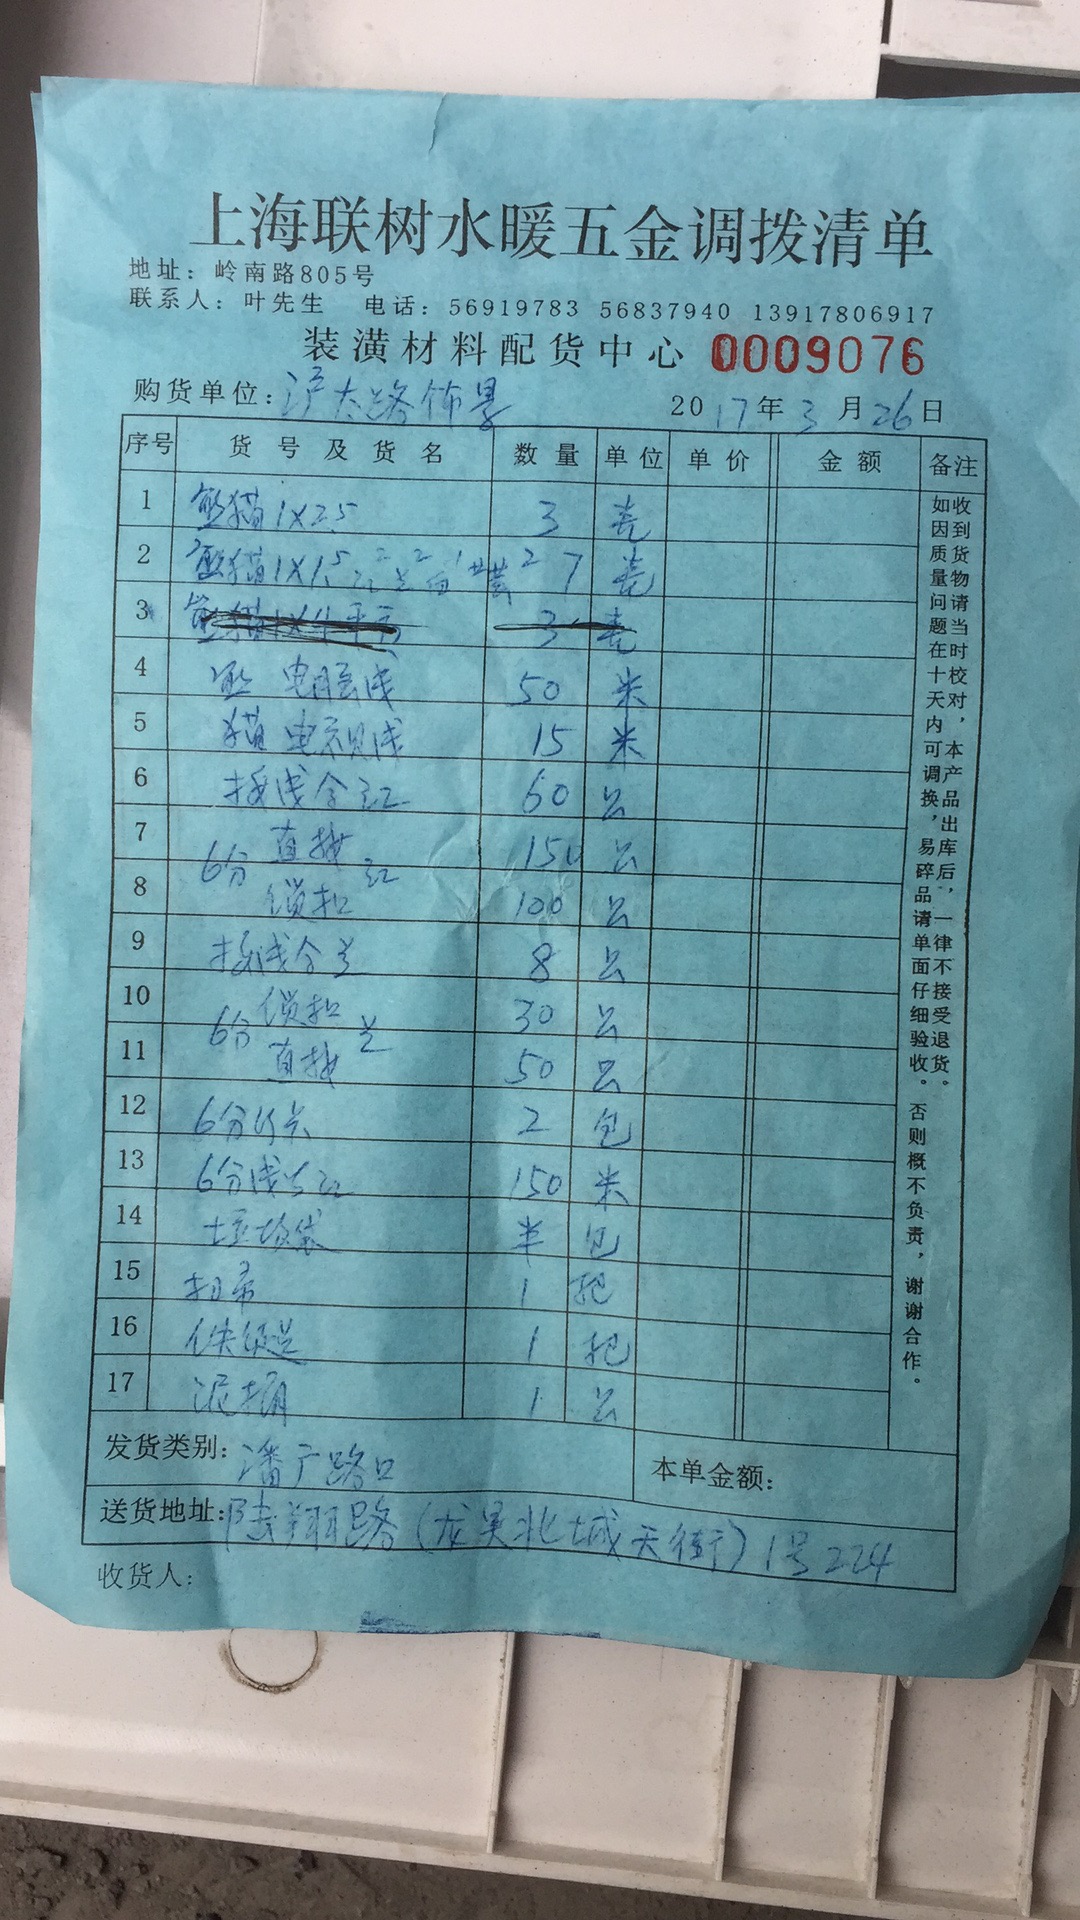 上海联树水暖五金调拨清单
地址：岭南路805号
联系人：叶先生 电话：56919783 56837940 13917806917
装潢材料配货中心 0009076
购货单位：沪太路佈景 2017年3月26日
序号 货号及货名 数量 单位 单价 金额 备注
1 熊猫1X2.5 3
2 熊猫1X1.5 红2 兰2 白1 27
3 熊猫1X4平方 3
4 熊 电脑线 50 米
5 猫 电视线 15 米
6 接线合 红 60 只
7 6分 直接 红 150 只
8 锁扣 100 只
9 接线合 兰 8 只
10 6分 锁扣 兰 30 只
11 直接 50 只
12 6分 2 包
13 6分线 红 150 米
14 垃圾袋 半 包
15 扫帚 1 把
16 铁 1 把
17 泥桶 1 只
收到货物请当时校对，本产品出库后，一律不接受退货。
如因质量问题在十天内可调换，易碎品请单面仔细验收。否则概不负责，谢谢合作。
发货类别：潘广路口 本单金额：
送货地址：陆翔路（龙吴北城天街）1号224
收货人：